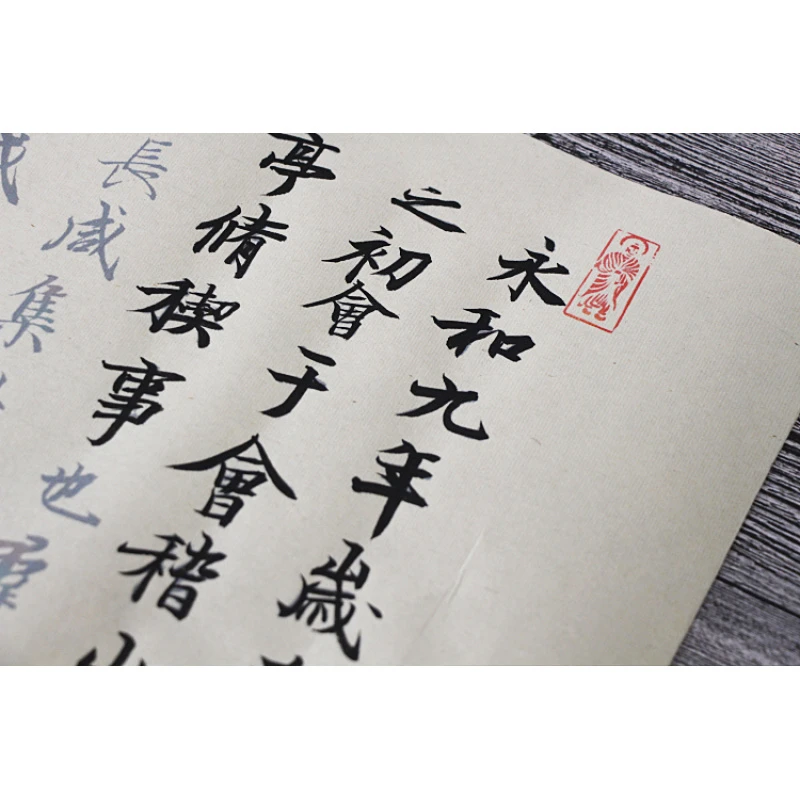 永和九年歲
之初會于會稽
亭脩稧事也羣
長咸集